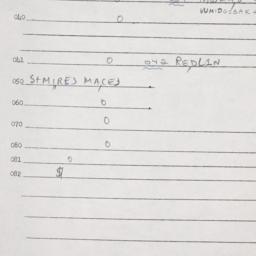 040 0
041 0 042 REDLIN
050 SAMIRES MACES
060 0
070 0
080 0
081 0
082 $